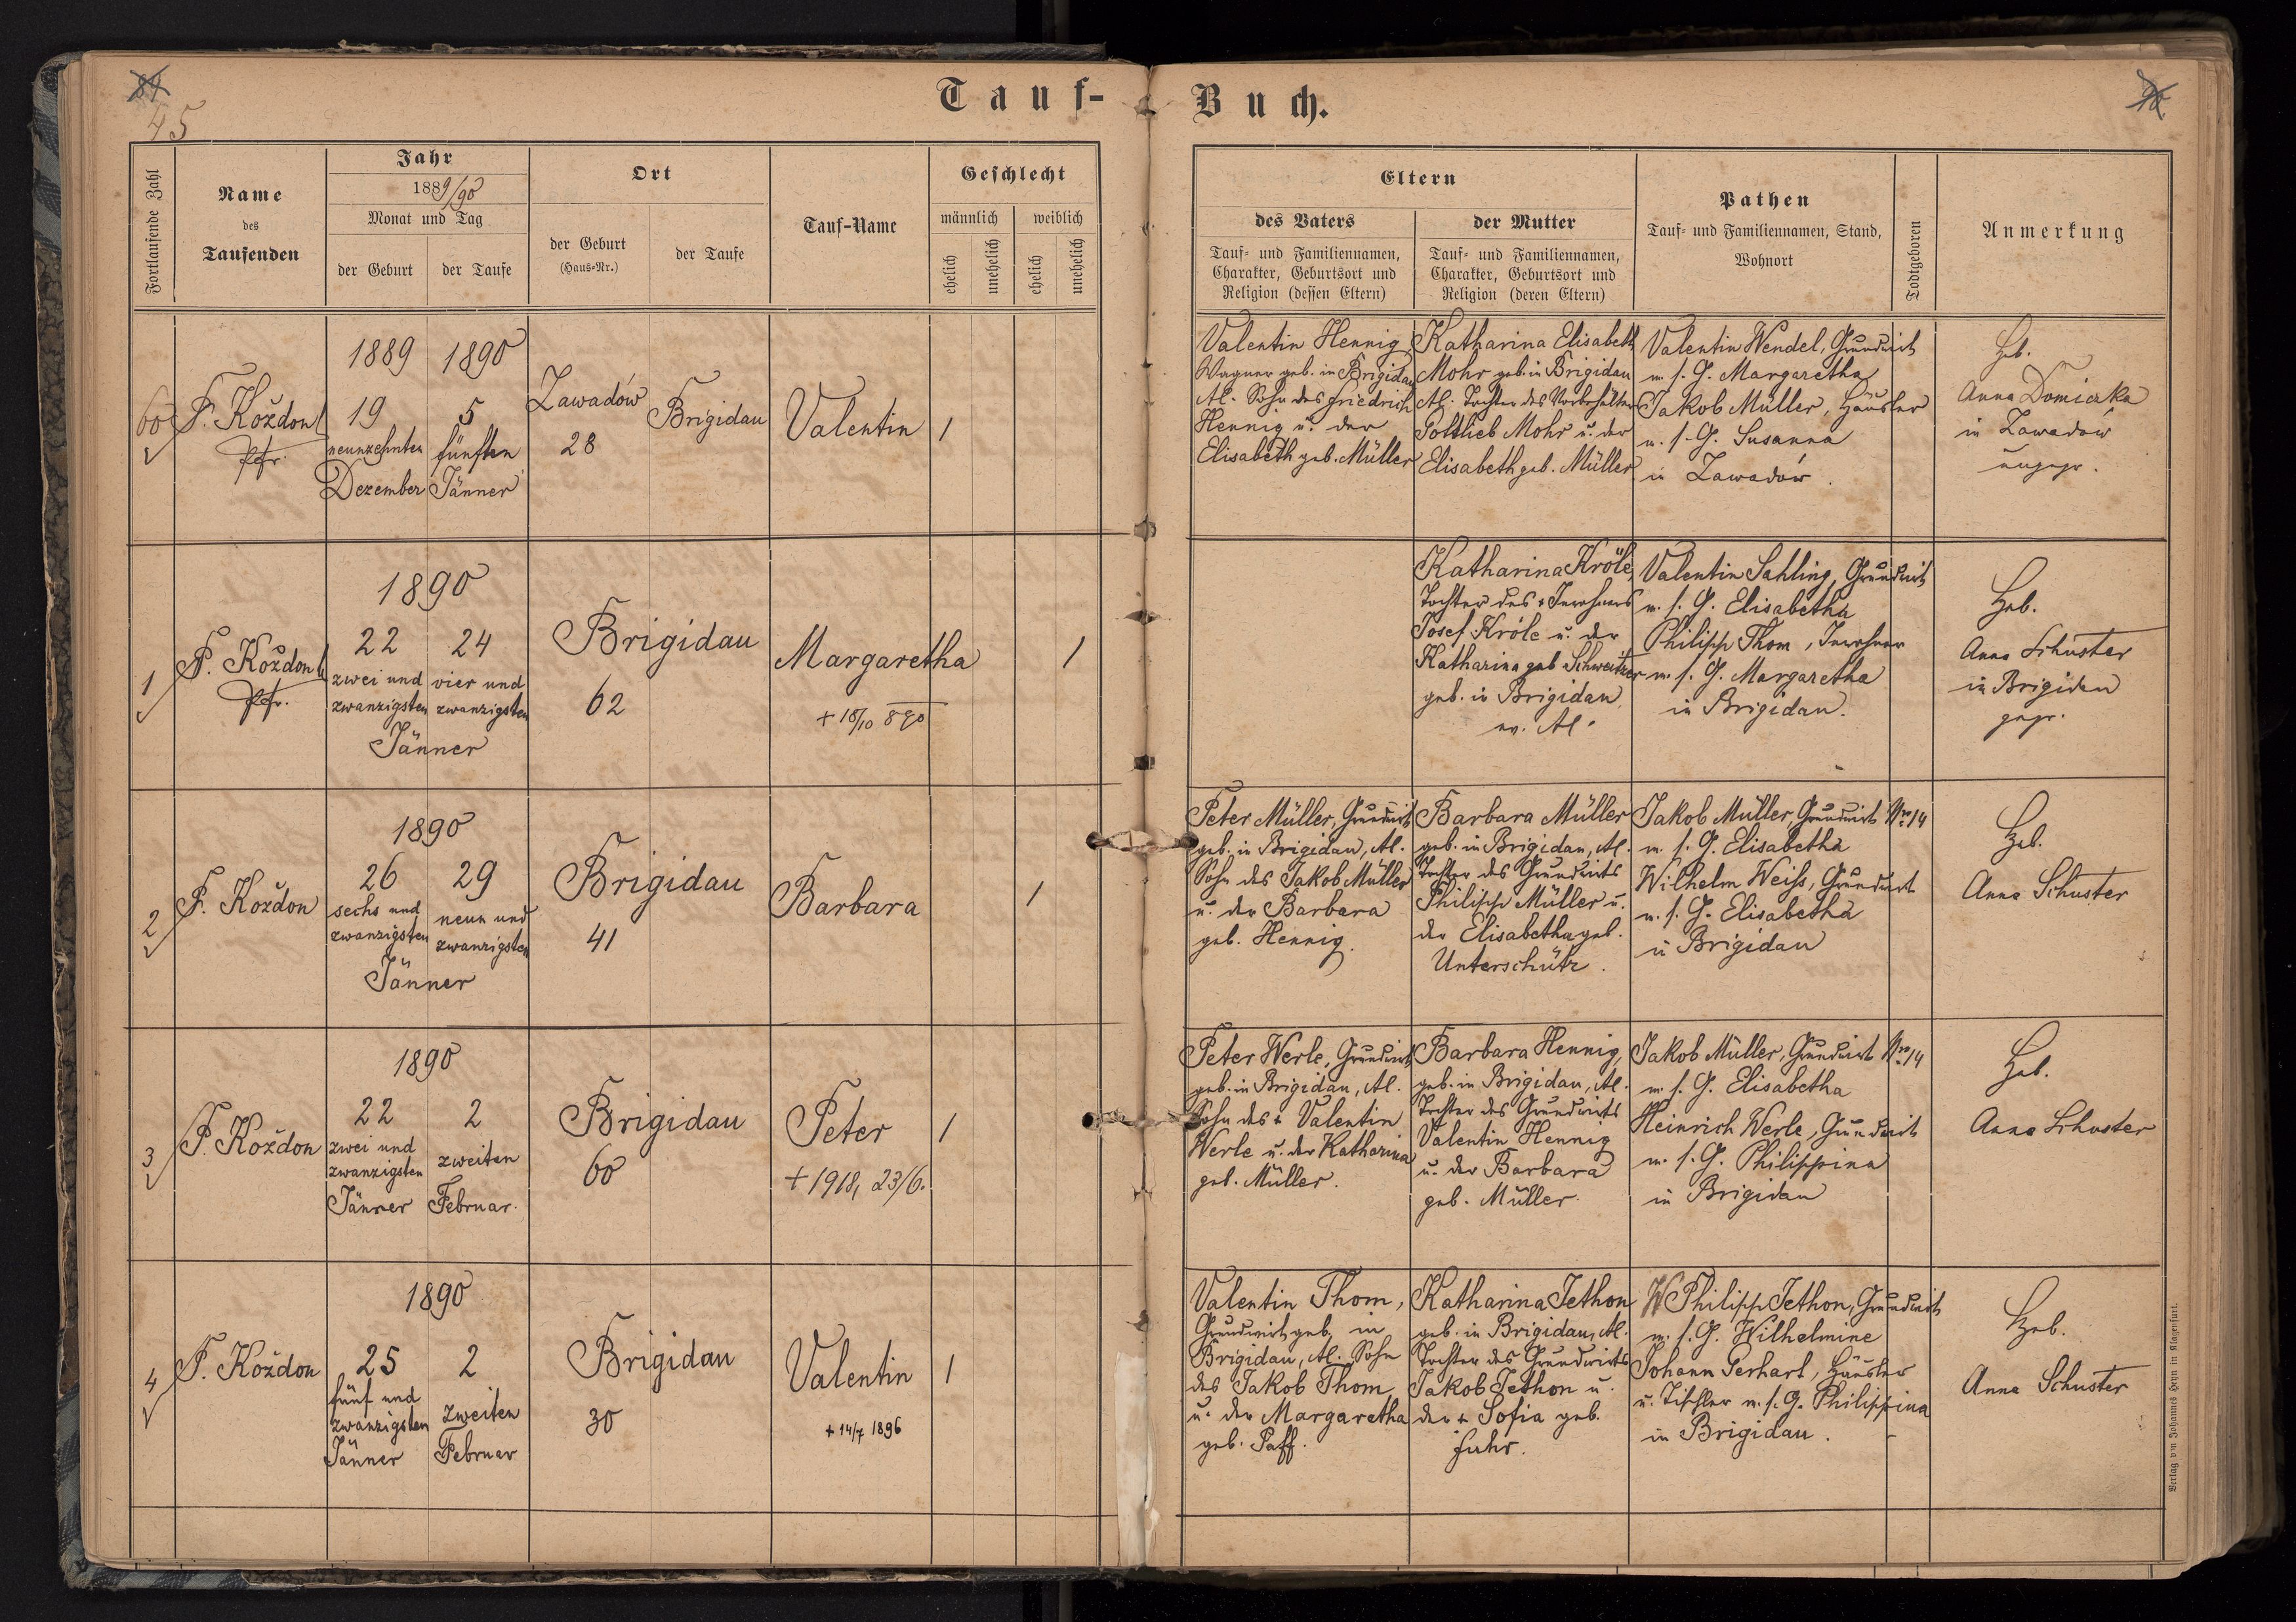 84
45
Tauf-
Buch.
Fortlaufende Zahl
Name
des
Taufenden
Jahr
1889/90
Monat und Tag
der Geburt
der Taufe
Ort
der Geburt
(Haus-Nr.)
der Taufe
Tauf-Name
Geschlecht
männlich
weiblich
ehelich
unehelich
ehelich
unehelich
Eltern
des Vaters
Tauf- und Familiennamen,
Charakter, Geburtsort und
Religion (dessen Eltern)
der Mutter
Tauf- und Familiennamen,
Charakter, Geburtsort und
Religion (deren Eltern)
Pathen
Tauf- und Familiennamen, Stand,
Wohnort
Todtgeboren
Anmerkung
60
F. Koždon
Pfr.
1889
19
neunzehnten
Dezember
1890
5
fünften
Jänner
Zawadów
28
Brigidau
Valentin
1
Valentin Hennig,
Wagner geb. in Brigidau
Al. Sohn des Friedrich
Hennig u. der
Elisabeth geb. Müller
Katharina Elisabeth
Mohr geb. in Brigidau
Al. Tochter des Vorbehälters
Gottlieb Mohr u. der
Elisabeth geb. Müller
Valentin Wendel, Grundwirt
m. s. G. Margaretha
Jakob Müller, Häusler
m. s. G. Susanna
in Zawadów.
Heb.
Anna Domiczka
in Zawadow
ungepr.
1
F. Koždon
Pfr.
1890
22
zwei und
zwanzigsten
24
vier und
zwanzigsten
Jänner
Brigidau
62
Margaretha
+ 18/10 890
1
Katharina Kröle,
Tochter des + Inwohners
Josef Kröle u. der
Katharina geb Schweitzer
geb. in Brigidau
ev. Al.
Valentin Sahling, Grundwirt
m. s. G. Elisabetha
Philipp Thom, Inwohner
m. s. G. Margaretha
in Brigidau.
Heb.
Anna Schuster
in Brigidau
gepr.
2
F. Koždon
1890
26
sechs und
zwanzigsten
29
neun und
zwanzigsten
Jänner
Brigidau
41
Barbara
1
Peter Müller, Grundwirt
geb. in Brigidau, Al.
Sohn des Jakob Müller
u. der Barbara
geb. Hennig.
Barbara Müller
geb. in Brigidau, Al.
Tochter des Grundwirts
Philipp Müller u.
der Elisabetha geb.
Unterschütz.
Jakob Müller, Grundwirt Nro 14
m. s. G. Elisabetha
Wilhelm Weiss, Grundwirt
m. s. G. Elisabetha
in Brigidau
Heb.
Anna Schuster
3
F. Koždon
1890
22
zwei und
zwanzigsten
Jänner
2
zweiten
Februar.
Brigidau
60
Peter
+ 1918, 23/6.
1
Peter Werle, Grundwirt
geb. in Brigidau, Al.
Sohn des + Valentin
Werle u. der Katharina
geb. Müller.
Barbara Hennig,
geb. in Brigidau, Al.
Tochter des Grundwirts
Valentin Hennig
u. der Barbara
geb. Müller.
Jakob Müller, Grundwirt Nro 14
m. s. G. Elisabetha
Heinrich Werle, Grundwirt
m. s. G. Philippina
in Brigidau
Heb.
Anna Schuster
4
F. Koždon
1890
25
fünf und
zwanzigsten
Jänner
2
zweiten
Februar
Brigidau
30
Valentin
+ 14/7 1896
1
Valentin Thom,
Grundwirt geb. in
Brigidau, Al. Sohn
des Jakob Thom,
u. der Margaretha
geb. Paff.
Katharina Jethon
geb. in Brigidau, Al.
Tochter des Grundwirts
Jakob Jethon u.
der + Sofia geb.
Fuhr.
Philipp Jethon, Grundwirt
m. s. G. Wilhelmine
Johann Gerhart, Häusler
u. Tischler m. s. G. Philippina
in Brigidau.
Heb.
Anna Schuster
Verlag von Johannes Heyn in Klagenfurt.